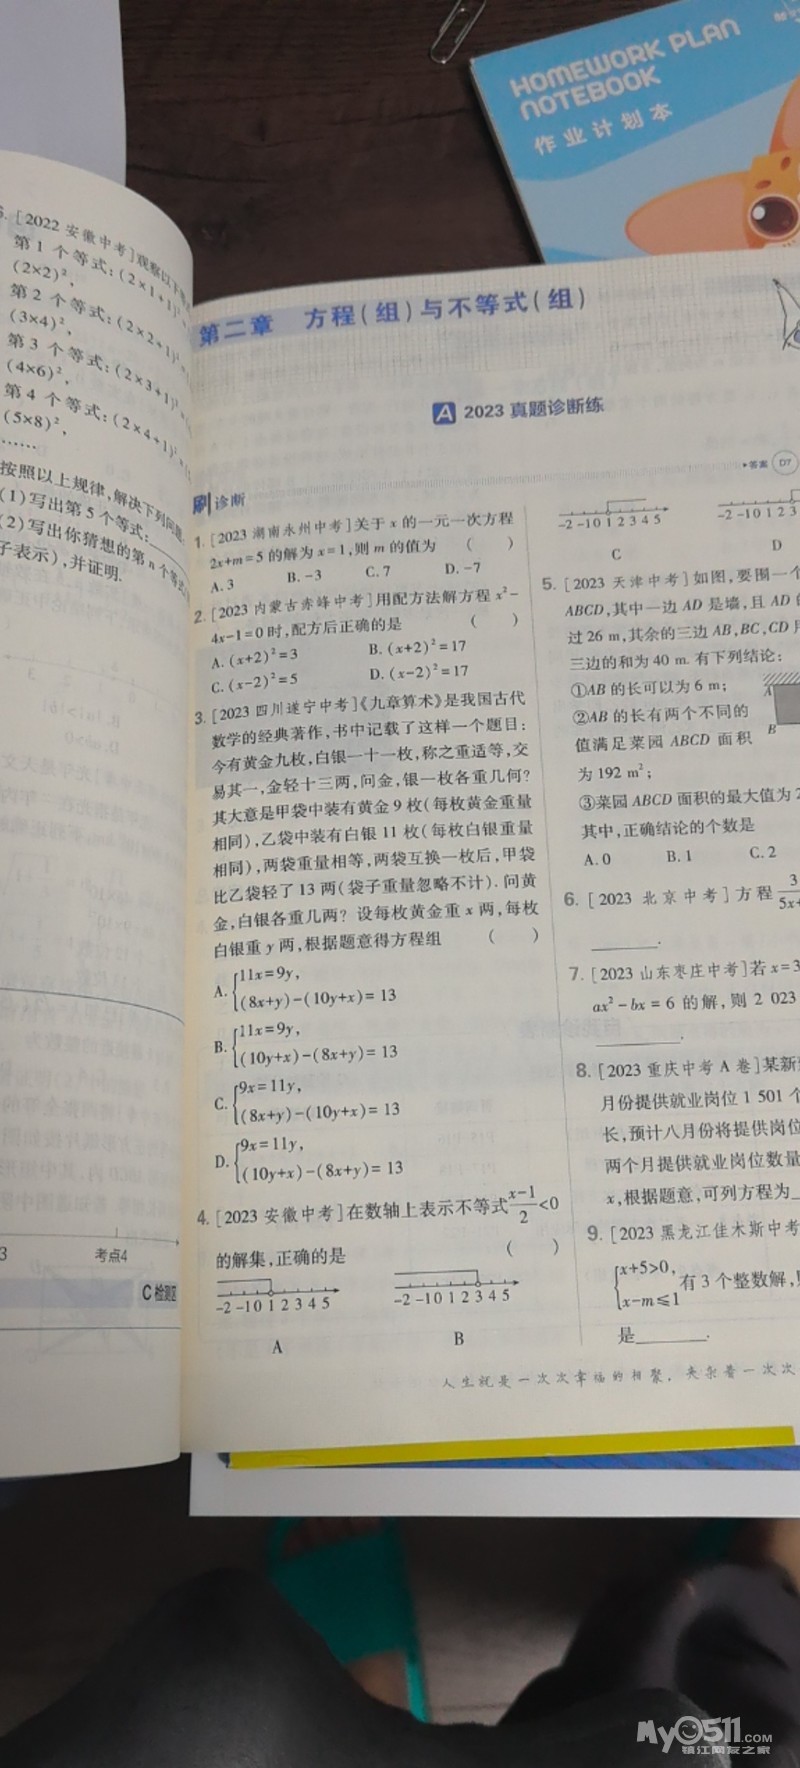 HOMEWORK PLAN
NOTEBOOK
作业计划本
[2022 安徽中考]观察以下
第 1 个等式:(2×1+1)²
(2×2)²,
第 2 个等式:(2×2+1)²
(3×4)²,
第 3 个等式:(2×3+1)²
(4×6)²,
第 4 个等式:(2×4+1)²
(5×8)²,
……
按照以上规律,解决下列问题:
(1)写出第 5 个等式:
(2)写出你猜想的第 n 个等式
子表示),并证明.
3 考点4
C 检测区
第二章 方程(组)与不等式(组)
A 2023 真题诊断练
答案 D7
刷 诊断
1. [2023 湖南永州中考]关于 x 的一元一次方程
2x+m=5 的解为 x=1,则 m 的值为 ( )
A. 3 B. -3 C. 7 D. -7
2. [2023 内蒙古赤峰中考]用配方法解方程 x²-
4x-1=0 时,配方后正确的是 ( )
A. (x+2)²=3 B. (x+2)²=17
C. (x-2)²=5 D. (x-2)²=17
3. [2023 四川遂宁中考]《九章算术》是我国古代
数学的经典著作,书中记载了这样一个题目:
今有黄金九枚,白银一十一枚,称之重适等,交
易其一,金轻十三两,问金,银一枚各重几何?
其大意是甲袋中装有黄金 9 枚(每枚黄金重量
相同),乙袋中装有白银 11 枚(每枚白银重量
相同),两袋重量相等,两袋互换一枚后,甲袋
比乙袋轻了 13 两(袋子重量忽略不计). 问黄
金,白银各重几两? 设每枚黄金重 x 两,每枚
白银重 y 两,根据题意得方程组 ( )
A. {11x=9y,
(8x+y)-(10y+x)=13
B. {11x=9y,
(10y+x)-(8x+y)=13
C. {9x=11y,
(8x+y)-(10y+x)=13
D. {9x=11y,
(10y+x)-(8x+y)=13
4. [2023 安徽中考]在数轴上表示不等式 (x-1)/2<0
的解集,正确的是 ( )
-2 -1 0 1 2 3 4 5 -2 -1 0 1 2 3 4 5
A B
-2 -1 0 1 2 3 4 5 -2 -1 0 1 2 3
C D
5. [2023 天津中考]如图,要围一个
ABCD,其中一边 AD 是墙,且 AD
过 26 m,其余的三边 AB,BC,CD
三边的和为 40 m. 有下列结论:
①AB 的长可以为 6 m;
②AB 的长有两个不同的
值满足菜园 ABCD 面积
为 192 m²;
A
B
③菜园 ABCD 面积的最大值为 2
其中,正确结论的个数是
A. 0 B. 1 C. 2
6. [2023 北京中考]方程 3/5x+
7. [2023 山东枣庄中考]若 x=3
ax²-bx=6 的解,则 2 023
8. [2023 重庆中考 A 卷]某新
月份提供就业岗位 1 501 个
长,预计八月份将提供就业岗位
两个月提供就业岗位数量
x,根据题意,可列方程为
9. [2023 黑龙江佳木斯中考
{x+5>0,
x-m≤1 有 3 个整数解,
是 .
人生就是一次次幸福的相聚,夹杂着一次次
My0511.COM
镇江网友之家